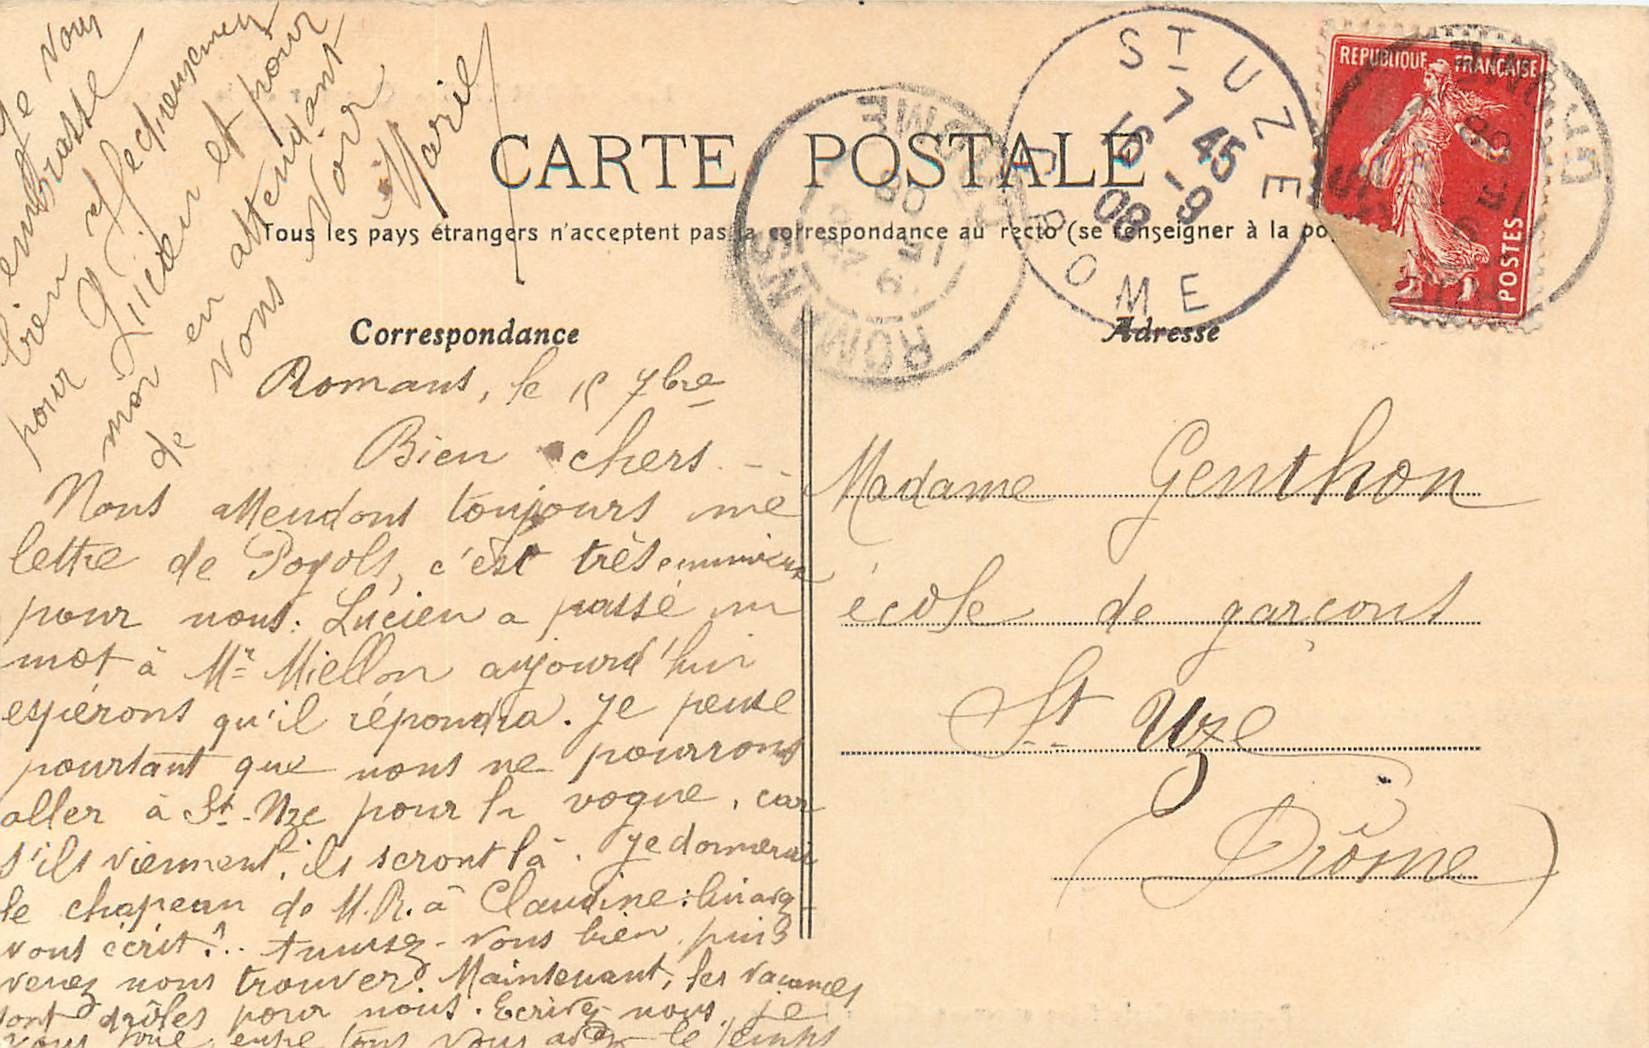 CARTE POSTALE
Tous les pays étrangers n'acceptent pas la correspondance au recto (se renseigner à la
Correspondance
Adresse
REPUBLIQUE FRANÇAISE
POSTES
ST UZE
DROME
7 45
16 - 9
08
ROMANS
DROME
15
08
Romans, le 15 7bre
Bien chers...
Nous attendons toujours une
lettre de Pogols, c'est très ennuyeux
pour nous. Lucien a passé un
mot à Mr Miellon aujourd'hui
espérons qu'il répondra. Je pense
pourtant que nous ne pourrons
aller à St-Uze pour la vogue, car
s'ils viennent, ils seront là. Je donnerai
le chapeau de M.R. à Claudine:
vous écrit?.. Amusez-vous bien, puis
venez nous trouver. Maintenant, les vacances
sont drôles pour nous. Ecrivez nous,
vous avez le temps
Je vous
embrasse
bien affectueusement
pour Lucien et pour
moi en attendant
de vous voir
Marie
Madame Genthon
école de garçons
St Uze
(Drôme)